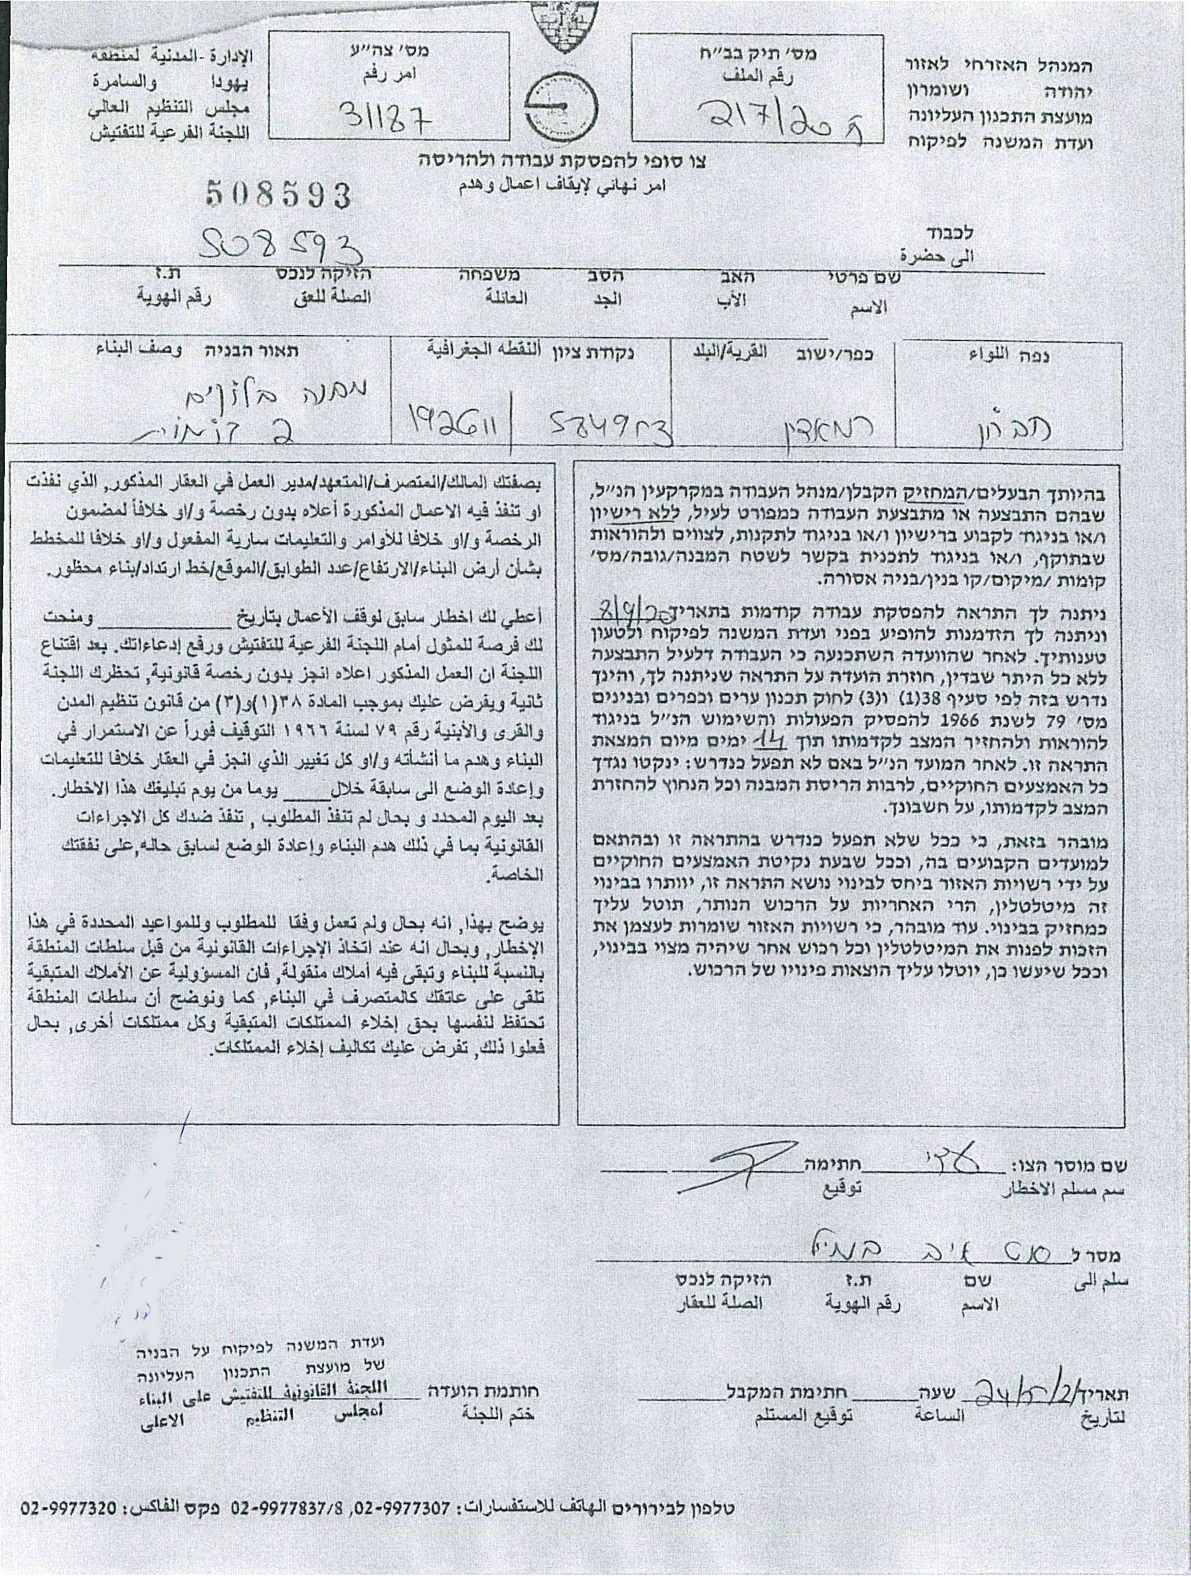 המנהל האזרחי לאזור
יהודה ושומרון
מועצת התכנון העליונה
ועדת המשנה לפיקוח
מס׳ תיק בב״ח
رقم الملف
217/20
מס׳ צה״ע
امر رقم
31187
الإدارة-المدنية لمنطقه
يهودا والسامرة
مجلس التنظيم العالي
اللجنة الفرعية للتفتيش
צו סופי להפסקת עבודה ולהריסה
امر نهائي لإيقاف اعمال وهدم
508593
לכבוד
الى حضرة
508593
שם פרטי האב הסב משפחה הזיקה לנכס ת.ז
الاسم الأب الجد العائلة الصلة للعق رقم الهوية
נפה اللواء
כפר/ישוב القرية/البلد
נקודת ציון النقطه الجغرافية
תאור הבניה وصف البناء
חברון
רמאדין
192611
מבנה בלוקים
בהיותך הבעלים/המחזיק הקבלן/מנהל העבודה במקרקעין הנ״ל,
שבהם התבצעה או מתבצעת העבודה כמפורט לעיל, ללא רישיון
ו/או בניגוד לקבוע ברישיון ו/או בניגוד לתקנות, לצווים ולהוראות
שבתוקף, ו/או בניגוד לתכנית בקשר לשטח המבנה/גובה/מס׳
קומות /מיקום/קו בנין/בניה אסורה.
ניתנה לך התראה להפסקת עבודה קודמות בתאריך 8/9/20
וניתנה לך הזדמנות להופיע בפני ועדת המשנה לפיקוח ולטעון
טענותיך. לאחר שהוועדה השתכנעה כי העבודה דלעיל התבצעה
ללא כל היתר שבדין, חוזרת הועדה על התראה שניתנה לך, והינך
נדרש בזה לפי סעיף 38(1) ו(3) לחוק תכנון ערים וכפרים ובנינים
מס׳ 79 לשנת 1966 להפסיק הפעולות והשימוש הנ״ל בניגוד
להוראות ולהחזיר המצב לקדמותו תוך 14 ימים מיום המצאת
התראה זו. לאחר המועד הנ״ל באם לא תפעל כנדרש: ינקטו נגדך
כל האמצעים החוקיים, לרבות הריסת המבנה וכל הנחוץ להחזרת
המצב לקדמותו, על חשבונך.
מובהר בזאת, כי ככל שלא תפעל כנדרש בהתראה זו ובהתאם
למועדים הקבועים בה, וככל שבעת נקיטת האמצעים החוקיים
על ידי רשויות האזור ביחס לבינוי נושא התראה זו, יוותרו בבינוי
זה מיטלטלין, הרי האחריות על הרכוש הנותר, תוטל עליך
כמחזיק בבינוי. עוד מובהר, כי רשויות האזור שומרות לעצמן את
הזכות לפנות את המיטלטלין וכל רכוש אחר שיהיה מצוי בבינוי,
וככל שיעשו כן, יוטלו עליך הוצאות פינויו של הרכוש.
بصفتك المالك/المتصرف/المتعهد/مدير العمل في العقار المذكور, الذي نفذت
او تنفذ فيه الاعمال المذكورة أعلاه بدون رخصة و/او خلافاً لمضمون
الرخصة و/او خلافا للأوامر والتعليمات سارية المفعول و/او خلافا للمخطط
بشأن أرض البناء/الارتفاع/عدد الطوابق/الموقع/خط ارتداد/بناء محظور.
أعطي لك اخطار سابق لوقف الأعمال بتأريخ ________ ومنحت
لك فرصة للمثول أمام اللجنة الفرعية للتفتيش ورفع إدعاءاتك. بعد اقتناع
اللجنة ان العمل المذكور اعلاه انجز بدون رخصة قانونية, تحظرك اللجنة
ثانية ويفرض عليك بموجب المادة ٣٨(١)و(٣) من قانون تنظيم المدن
والقرى والأبنية رقم ٧٩ لسنة ١٩٦٦ التوقيف فوراً عن الاستمرار في
البناء وهدم ما أنشأته و/او كل تغيير الذي انجز في العقار خلافا للتعليمات
وإعادة الوضع الى سابقة خلال____ يوما من يوم تبليغك هذا الاخطار.
بعد اليوم المحدد و بحال لم تنفذ المطلوب , تنفذ ضدك كل الاجراءات
القانونية بما في ذلك هدم البناء وإعادة الوضع لسابق حاله,على نفقتك
الخاصة.
يوضح بهذا, انه بحال ولم تعمل وفقا للمطلوب وللمواعيد المحددة في هذا
الإخطار, وبحال انه عند اتخاذ الإجراءات القانونية من قبل سلطات المنطقة
بالنسبة للبناء وتبقى فيه أملاك منقولة, فان المسؤولية عن الأملاك المتبقية
تلقى على عاتقك كالمتصرف في البناء, كما ونوضح أن سلطات المنطقة
تحتفظ لنفسها بحق إخلاء الممتلكات المتبقية وكل ممتلكات أخرى, بحال
فعلوا ذلك, تفرض عليك تكاليف إخلاء الممتلكات.
שם מוסר הצו: עדי חתימה
سم مسلم الاخطار توقيع
מסר ל
سلم الى
שם ת.ז הזיקה לנכס
الاسم رقم الهوية الصلة للعقار
תאריך שעה חתימת המקבל
لتأريخ الساعة توقيع المستلم
חותמת הועדה
ختم اللجنة
ועדת המשנה לפיקוח על הבניה
של מועצת התכנון העליונה
اللجنة القانونية للتفتيش على البناء
لمجلس التنظيم الاعلى
טלפון לבירורים الهاتف للاستفسارات: 02-9977307, 02-9977837/8 פקס الفاكس: 02-9977320